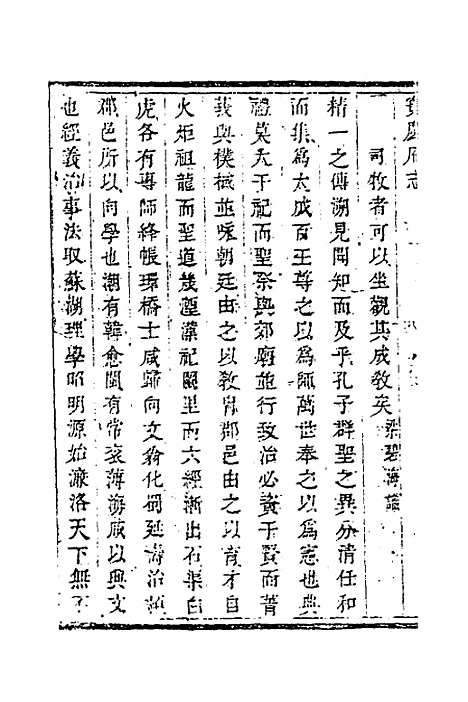 寶慶府志
司牧者可以坐觀其成教矣
精一之傳溯見聞知而及乎孔子群聖之異分清任和
而集為大成百王尊之以為師萬世奉之以為憲也典
禮莫大于祀而聖祭與郊廟並行政治必資于賢而菁
莪與樸棫並咏朝廷由之以教胄郡邑由之以育才自
火炬祖龍而聖道幾湮漢祀闕里而六經漸出石渠白
虎各有專師絳帳環橋士咸歸向文翁化蜀延壽治潁
郡邑所以向學也潮有韓愈閩有常袞薄海咸以興文
也經義治事法取蘇湖理學昭明源始濂洛天下無不